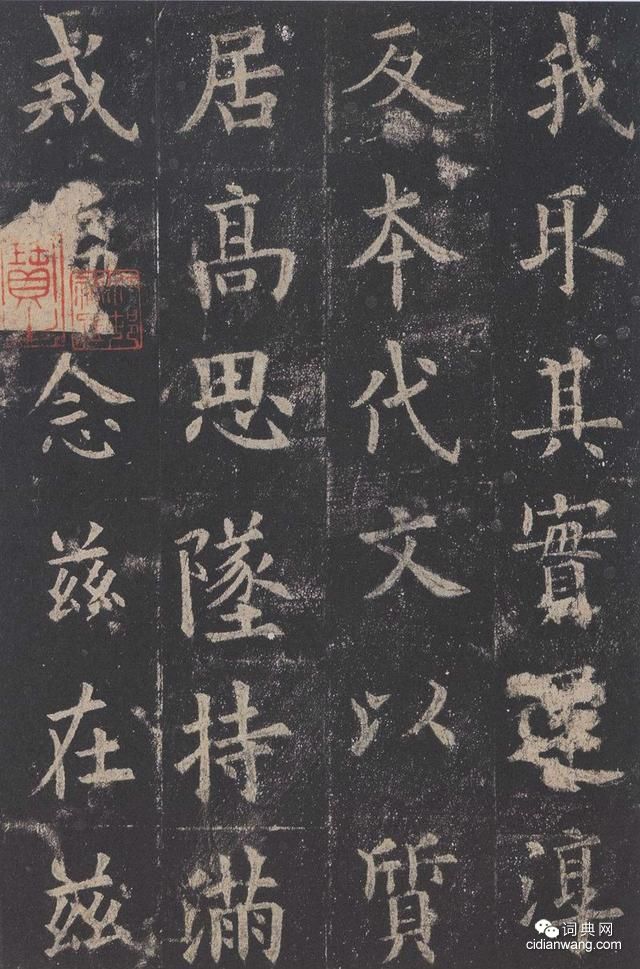 我取其實還淳
反本代文以質
居高思墜持滿
戒念茲在茲
词典网
cidianwang.com